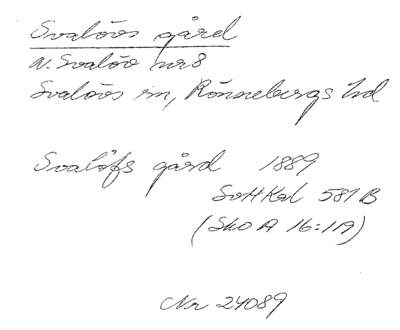 Svalövs gård
N. Svalöv nr 8
Svalövs sn, Rönnebergs hd
Svalöfs gård 1889
SvHKal 581 B
(Sko A 16:119)
Nr 24089